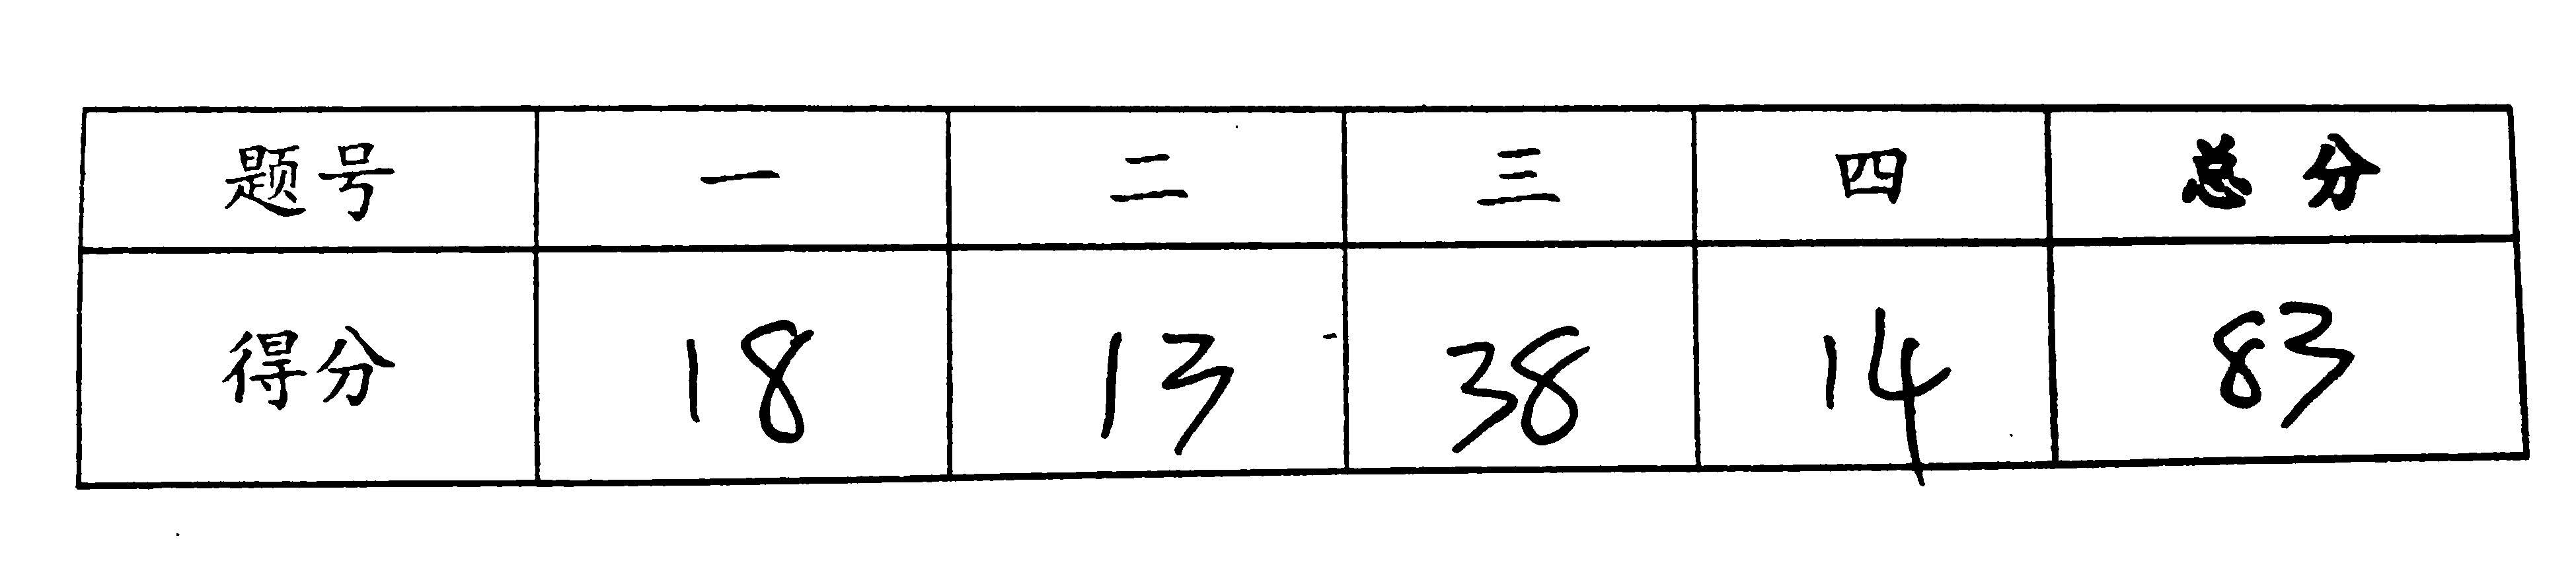 题号 一 二 三 四 总分
得分 18 13 38 14 83